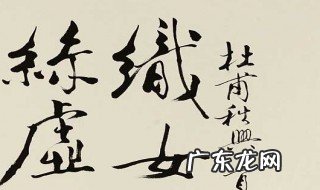 杜甫秋興
織女
絲虛
广东龙网